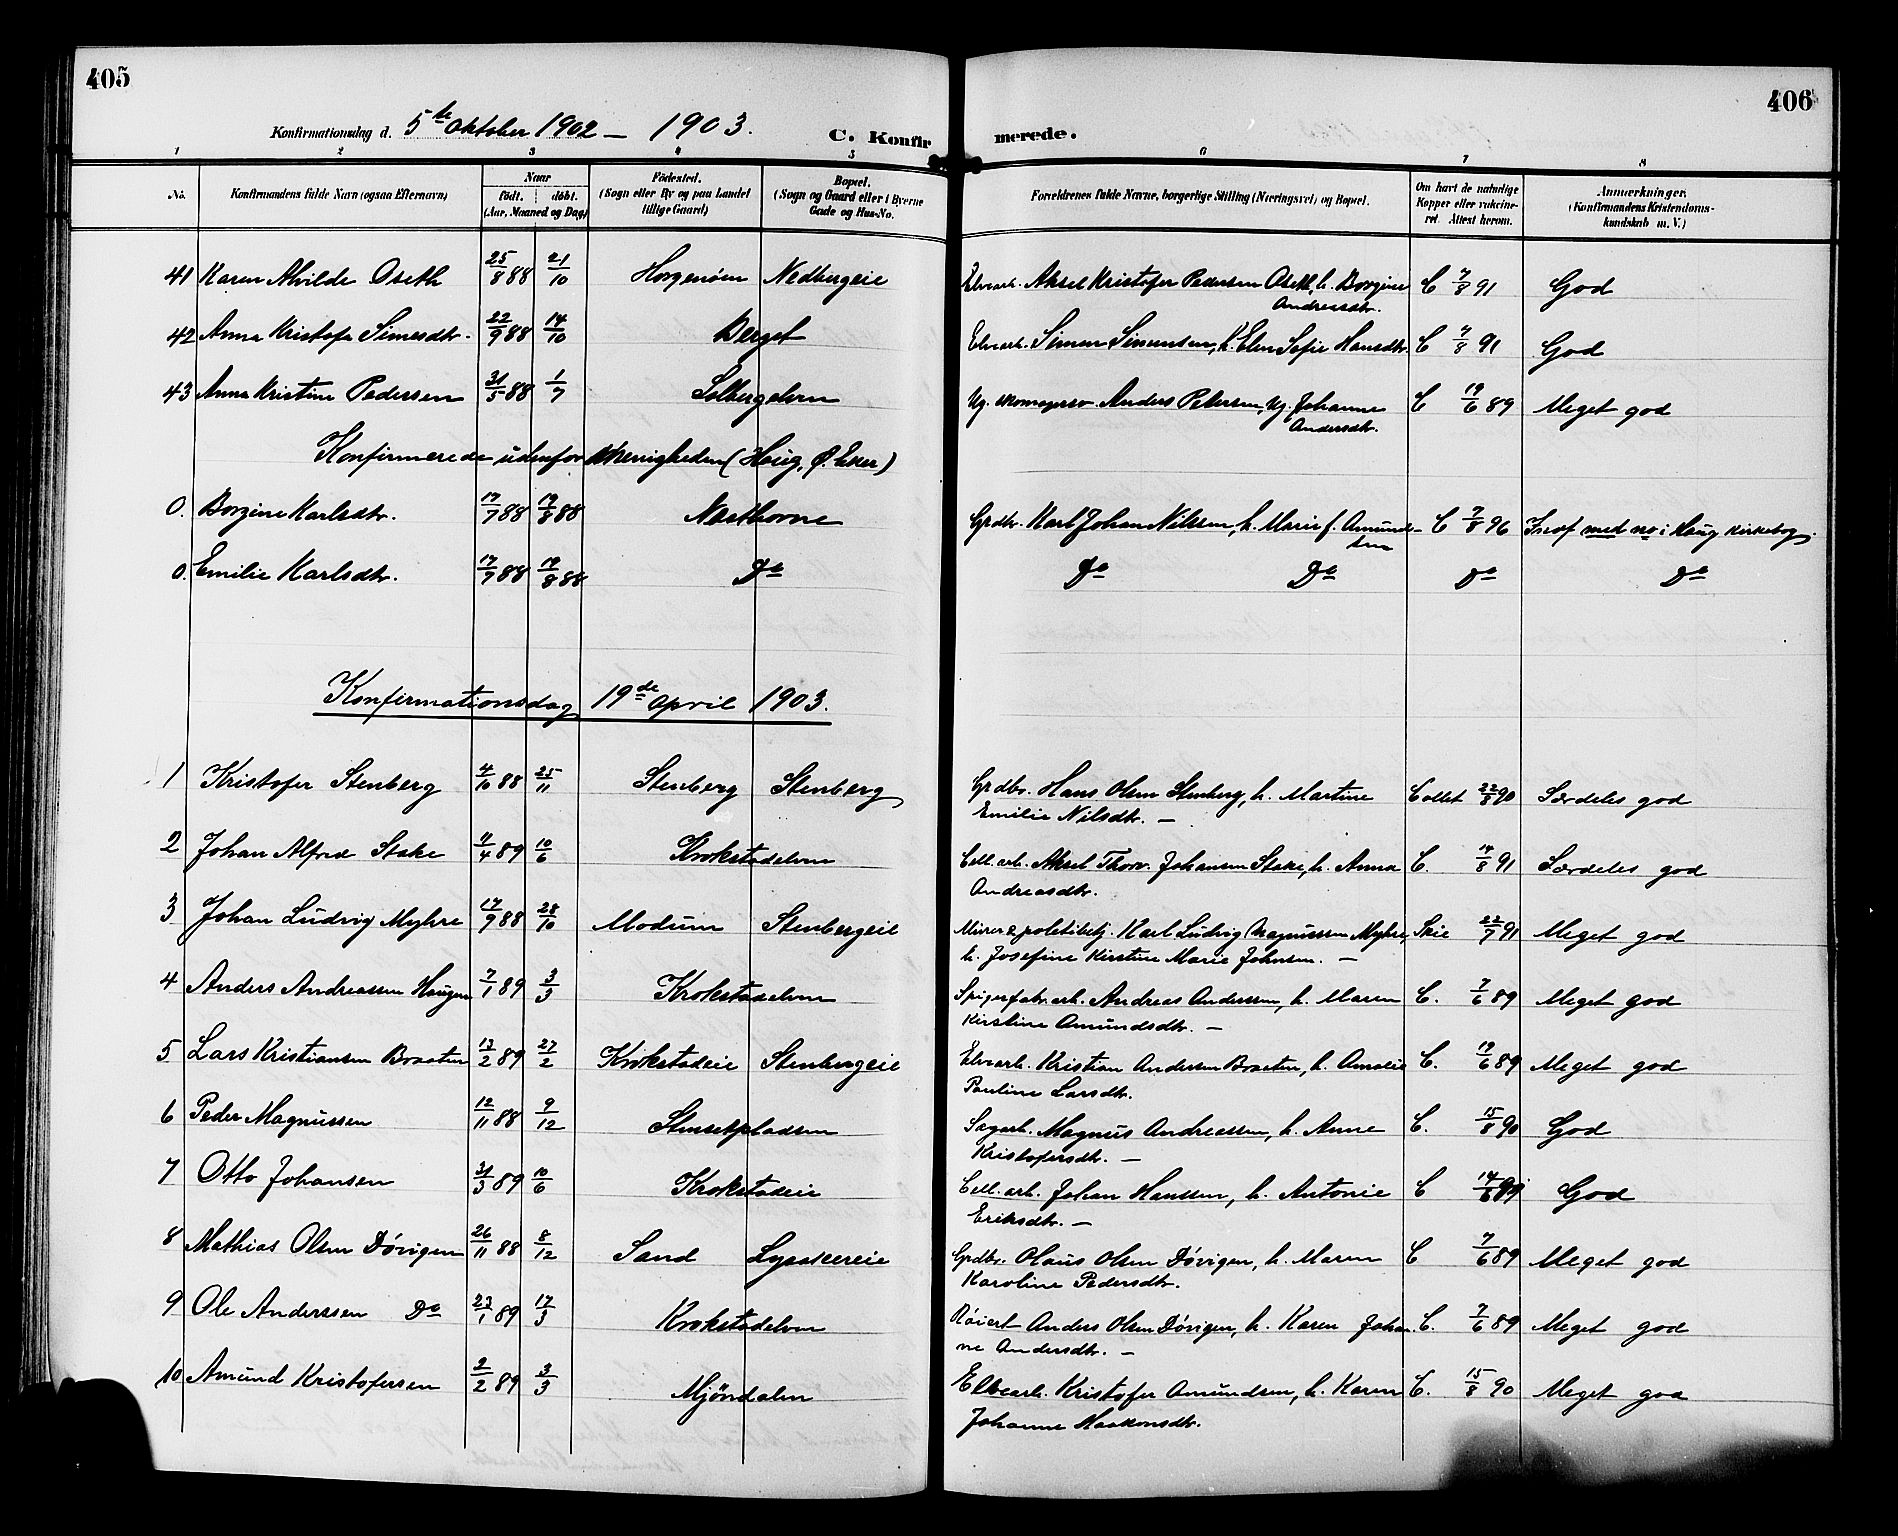 405
406
Konfirmationsdag d. 5te Oktober 1902 – 1903.
C. Konfir merede.
1 2 3 4 5 6 7 8
No. Konfirmandens fulde Navn (ogsaa Efternavn) Naar Födt. döbt. (Aar, Maaned og Dag) Födested. (Sogn eller By og paa Landet tillige Gaard) Bopæl. (Sogn og Gaard eller i Byerne Gade og Hus-No. Forældrenes fulde Navne, borgerlige Stilling (Næringsvei) og Bopæl. Om havt de naturlige Kopper eller vaksineret. Attest herom. Anmerkninger. (Konfirmandens Kristendomskundskab m. V.)
41 Karen Alvilde Oseth 25/8 88 21/10 Horgenöen Nedbergeie Elvearb. Aksel Kristofer Pedersen Oseth, h. Borgine Andreasdtr. C 7/8 91 God
42 Anna Kristofa Simesdtr. 22/9 88 14/10 Berget Elvearb. Simen Simensen, h. Elen Sofie Hansdtr. C 7/8 91 God
43 Anna Kristine Pedersen 31/5 88 1/7 Solbergelven Ug. skomagersv. Anders Petersen, Ug. Johanne Andersdtr. C 19/6 89 Meget god
Konfirmerede udenfor Menigheden (Haug, Ø. Eker)
0. Borgine Karlsdtr. 17/7 88 19/8 88 Narthorne Grdbr. Karl Johan Nilssen, h. Marie f. Amundsen C 7/8 96 Indf med no i Haug kirkebog.
0. Emilie Karlsdtr. 17/7 88 19/8 88 Do Do Do Do Do
Konfirmationsdag 19de April 1903.
1 Kristofer Stenberg 4/10 88 25/11 Stenberg Stenberg Grdbr. Hans Olsen Stenberg, h. Martine Emilie Nilsdtr. – Collet 22/8 90 Særdeles god
2 Johan Alfred Stake 11/4 89 10/6 Krokstadelven Cell. arb. Aksel Thorv. Johansen Stake, h. Anna Andreasdtr. C. 14/8 91 Særdeles god
3 Johan Ludvig Myhre 17/9 88 28/10 Modum Stenbergeie Murer & politibetj. Karl Ludvig Magnussen Myhre, h. Josefine Kirstine Marie Johnsen. – Skie 22/7 91 Meget god
4 Anders Andreassen Haugen 7/1 89 3/3 Krokstadelven Spigerfabr. arb. Andreas Anderssen, h. Maren Kirstine Amundsdtr. – C. 7/6 89 Meget god
5 Lars Kristiansen Braaten 13/2 89 27/2 Krokstadeie Stenbergeie Elvearb. Kristian Andersen Braaten, h. Amalie Pauline Larsdtr. C. 19/6 89 Meget god
6 Peder Magnussen 12/11 88 9/12 Stensetpladsen Sagarb. Magnus Andreassen, h. Anne Kristofersdtr. – C. 15/8 90 God
7 Otto Johansen 31/3 89 10/6 Krokstadeie Cell. arb. Johan Hanssen, h. Antonie Eriksdtr. – C God
8 Mathias Olsen Dövigen 26/11 88 8/12 Sand Lysakereie Grdbr. Olaus Olsen Dövigen, h. Maren Karoline Pedersdtr. C 7/6 89 Meget god
9 Ole Anderssen Do 23/1 89 17/3 Krokstadelven Röiert Anders Olsen Dövigen, h. Karen Johanne Andersdtr. – C. 7/6 89 Meget god
10 Amund Kristofersen 2/2 89 3/3 Mjöndalen Elvearb. Kristofer Amundsen, h. Karen Johanne Haakonsdtr. C. 15/8 90 Meget god